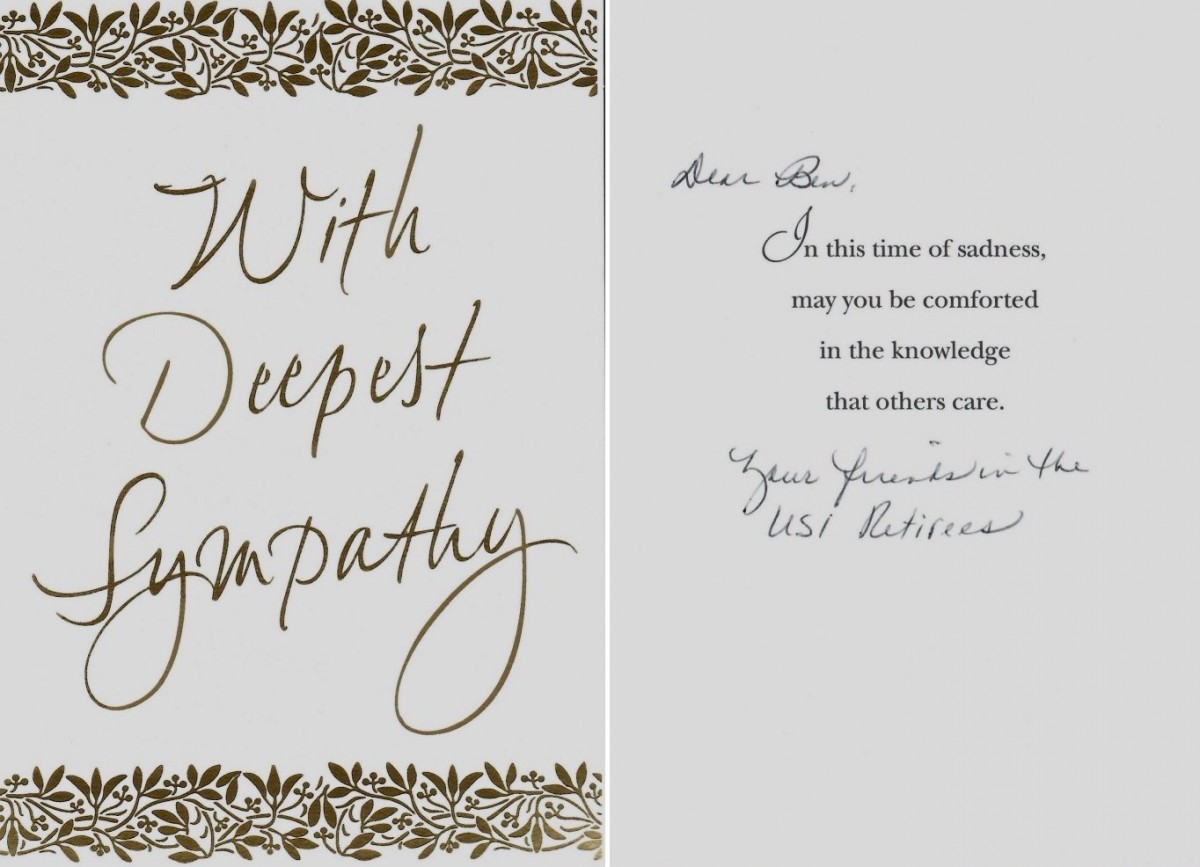 With
Deepest
Sympathy
Dear Ben,
In this time of sadness,
may you be comforted
in the knowledge
that others care.
Your friends in the
USI Retirees